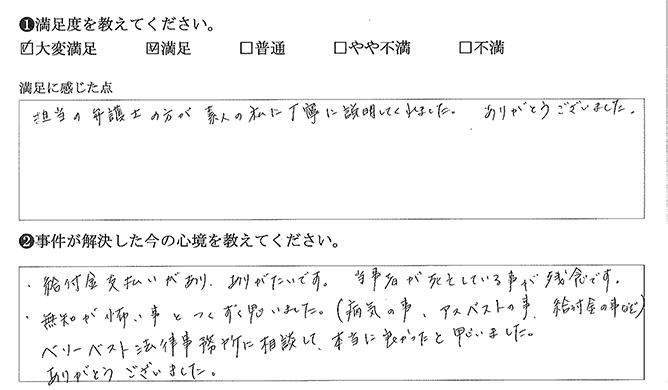 ❶満足度を教えてください。
☑大変満足 ☑満足 □普通 □やや不満 □不満
満足に感じた点
担当の弁護士の方が素人の私に丁寧に説明してくれました。 ありがとうございました。
❷事件が解決した今の心境を教えてください。
・給付金支払いがあり、ありがたいです。 当事者が死亡している事が残念です。
・無知が怖い事とつくづく思いました。(病気の事、アスベストの事、給付金の事など)
ベリーベスト法律事務所に相談して、本当に良かったと思いました。
ありがとうございました。